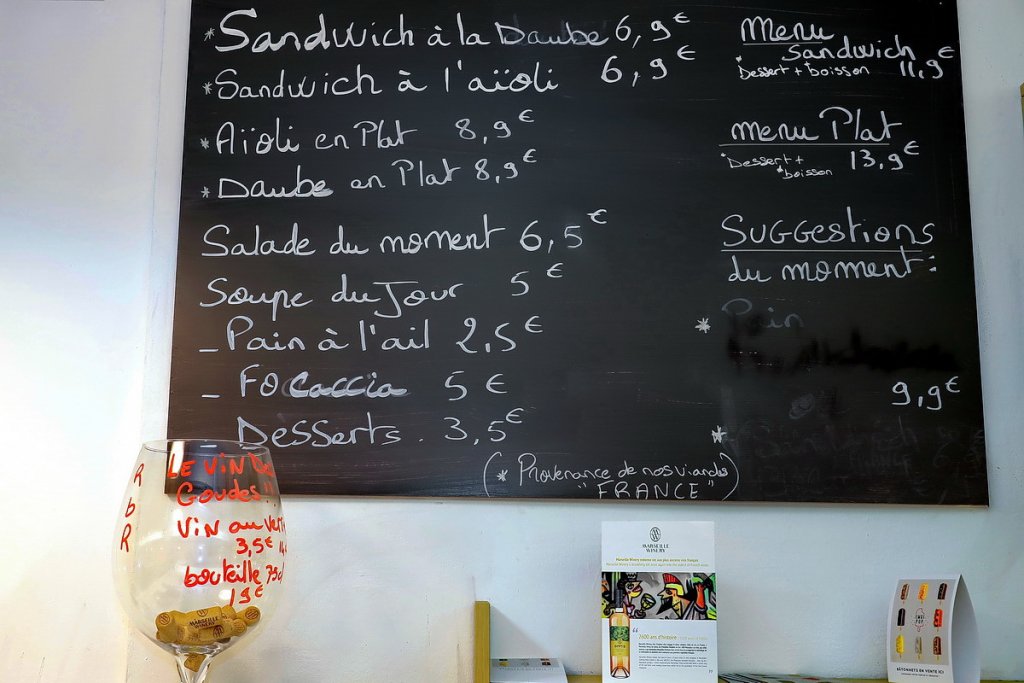 *Sandwich à la Daube 6,9€
*Sandwich à l'aïoli 6,9€
*Aïoli en Plat 8,9€
*Daube en Plat 8,9€
Salade du moment 6,5€
Soupe du Jour 5€
- Pain à l'ail 2,5€
- Focaccia 5€
- Desserts. 3,5€
(* Provenance de nos viandes
"FRANCE")
Menu
Sandwich
*Dessert + boisson 11,9€
menu Plat
*Dessert + 13,9€
*boisson
Suggestions
du moment:
* Pain
9,9€
*
LE VIN
Goudes"
VIN au verre
3,5€
bouteille 75cl
19€
RbR
MARSEILLE
WINERY
MARSEILLE
WINERY
2600 ans d'histoire
BÂTONNETS EN VENTE ICI